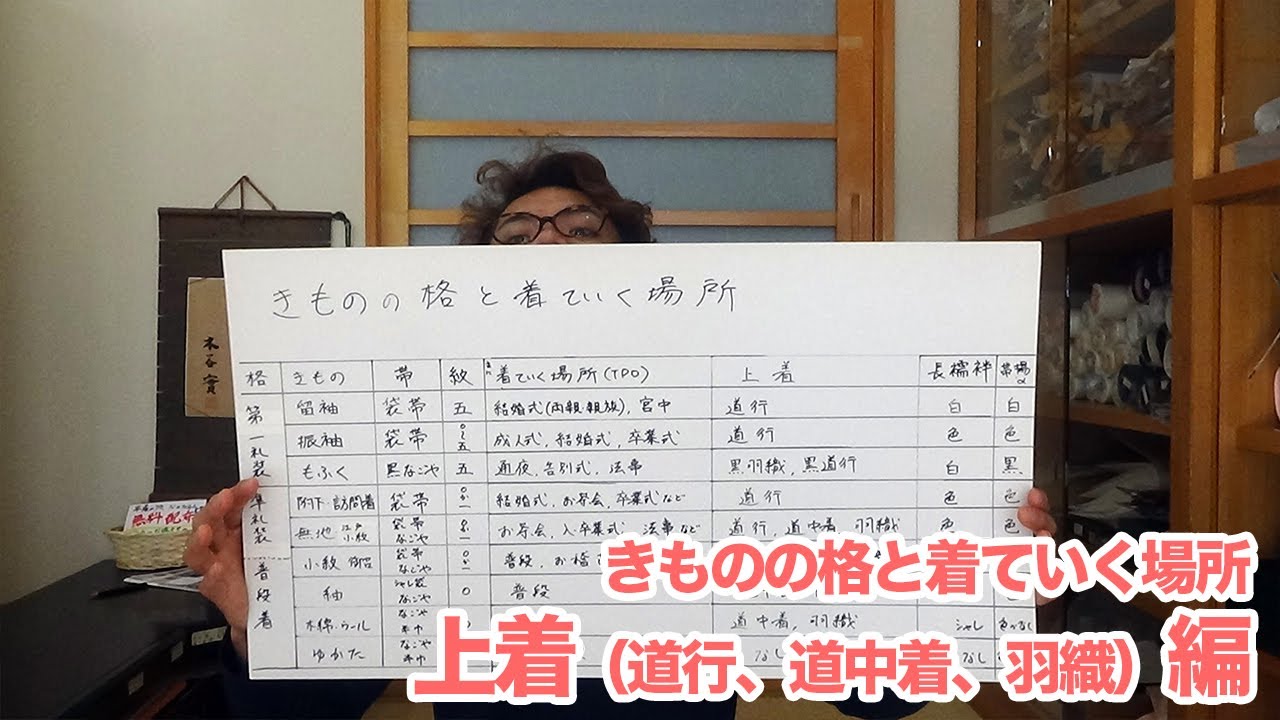 きものの格と着ていく場所
格 きもの 帯 紋 着ていく場所(TPO) 上着 長襦袢
第一礼装
留袖 袋帯 五 結婚式(両親・親族), 宮中 道行 白 白
振袖 袋帯 0〜五 成人式, 結婚式, 卒業式 道行 色 色
もふく 黒なごや 五 通夜, 告別式, 法事 黒羽織, 黒道行 白 黒
準礼装
附下 訪問着 袋帯 結婚式, お茶会, 卒業式など 道行 色 色
無地 江戸小紋 袋帯 なごや お茶会, 入卒業式, 法事など 道行, 道中着, 羽織 色 色
普段着
小紋 袋帯 なごや 普段, お稽
紬 しゃれ袋 なごや 0 普段
木綿・ウール なごや 半巾 道中着, 羽織
ゆかた なごや 半巾 なし なし
木谷實
無料配布
きものの格と着ていく場所
上着（道行、道中着、羽織）編